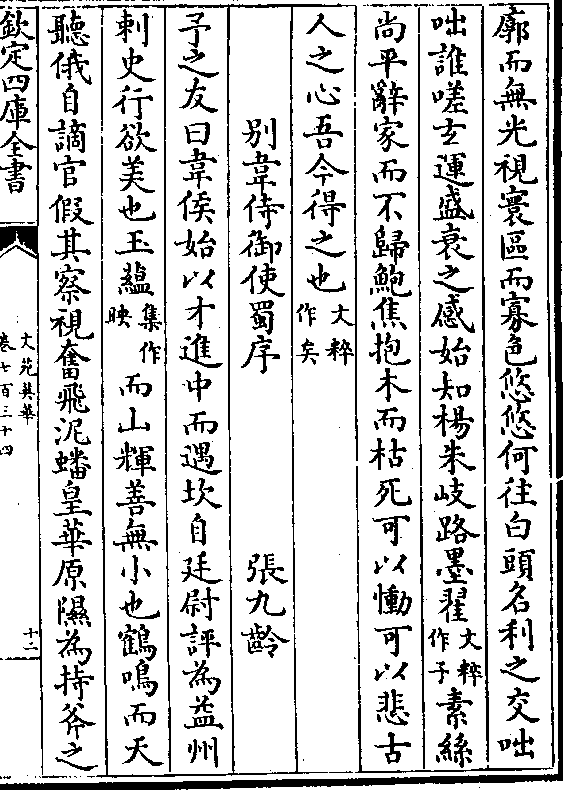 廓而無光視寰區而寡色悠悠何往白頭名利之交咄
咄誰嗟玄運盛衰之感始知楊朱岐路墨翟文粹作子素絲
尚平辭家而不歸鮑焦抱木而枯死可以慟可以悲古
人之心吾今得之也文粹作矣
別韋侍御使蜀序 張九齡
予之友曰韋侯始以才進中而遇坎自廷尉評為益州
刺史行欲美也玉蘊集作映而山輝善無小也鶴鳴而天
聽俄自謫官假其察視奮飛泥蟠皇華原隰為持斧之
欽定四庫全書
文苑英華
卷七百三十四
十二